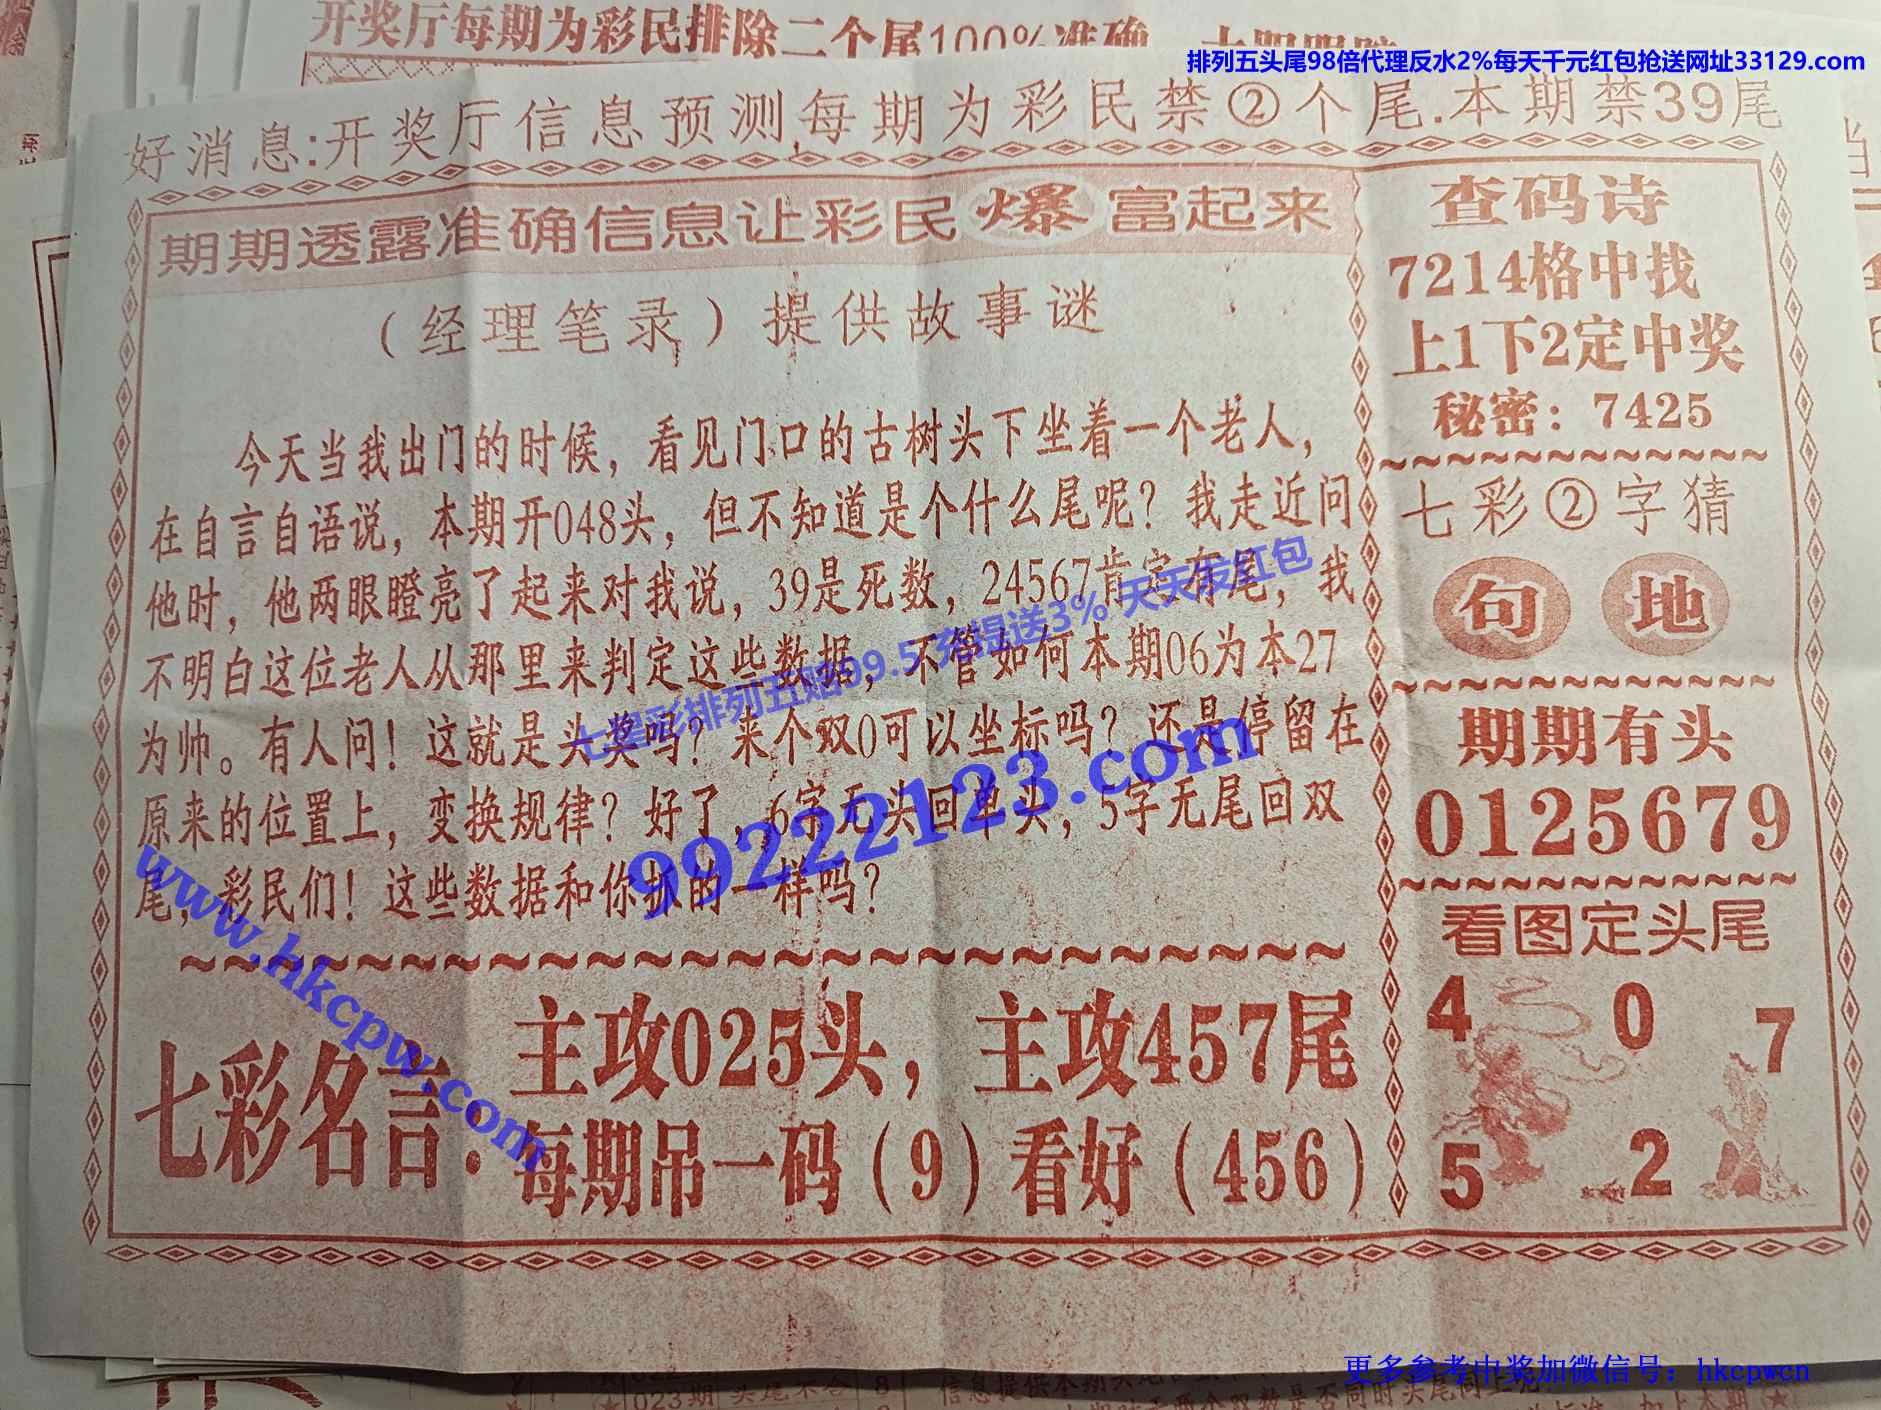 开奖厅每期为彩民排除二个尾100%准确
排列五头尾98倍代理反水2%每天千元红包抢送网址33129.com
好消息:开奖厅信息预测每期为彩民禁②个尾.本期禁39尾
期期透露准确信息让彩民爆富起来
（经理笔录）提供故事谜
今天当我出门的时候，看见门口的古树头下坐着一个老人，
在自言自语说，本期开048头，但不知道是个什么尾呢？我走近问
他时，他两眼瞪亮了起来对我说，39是死数，24567肯定有尾，我
不明白这位老人从那里来判定这些数据，不管如何本期06为本27
为帅。有人问！这就是头奖吗？来个双0可以坐标吗？还是停留在
原来的位置上，变换规律？好了，6字无头回单头，5字无尾回双
尾，彩民们！这些数据和你抓的一样吗？
七星彩排列五赔99.5 充提送3% 天天发红包
99222123.com
www.hkcpw.com
七彩名言：
主攻025头，主攻457尾
每期吊一码（9）看好（456）
查码诗
7214格中找
上1下2定中奖
秘密：7425
七彩②字猜
句 地
期期有头
0125679
看图定头尾
4 0 7
5 2
更多参考中奖加微信号：hkcpwcn
023期